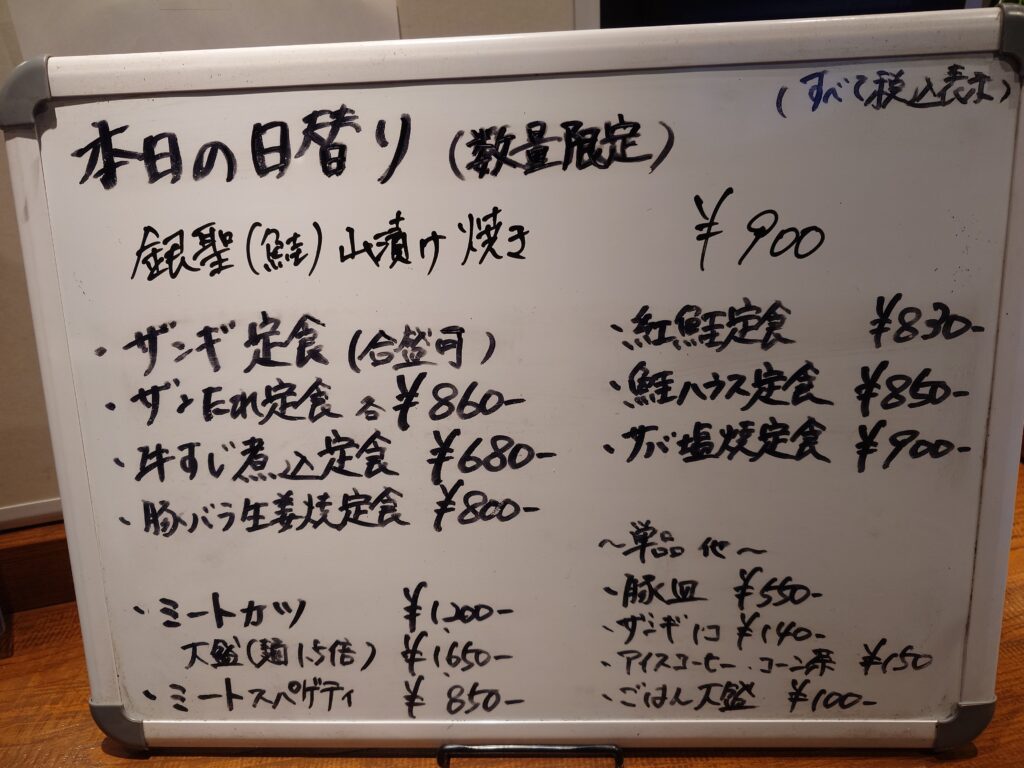 (すべて税込表示)
本日の日替り (数量限定)
銀聖(鮭)山漬け焼き ¥900
・ザンギ定食 (合盛可)
・ザンたれ定食 各¥860-
・牛すじ煮込定食 ¥680-
・豚バラ生姜焼定食 ¥800-
・ミートカツ ¥1,200-
大盛(麺1.5倍) ¥1,650-
・ミートスパゲティ ¥850-
・紅鮭定食 ¥830-
・鮭ハラス定食 ¥850-
・サバ塩焼定食 ¥900-
〜単品他〜
・豚皿 ¥550-
・ザンギ1コ ¥140-
・アイスコーヒー・コーン茶 ¥150
・ごはん大盛 ¥100-